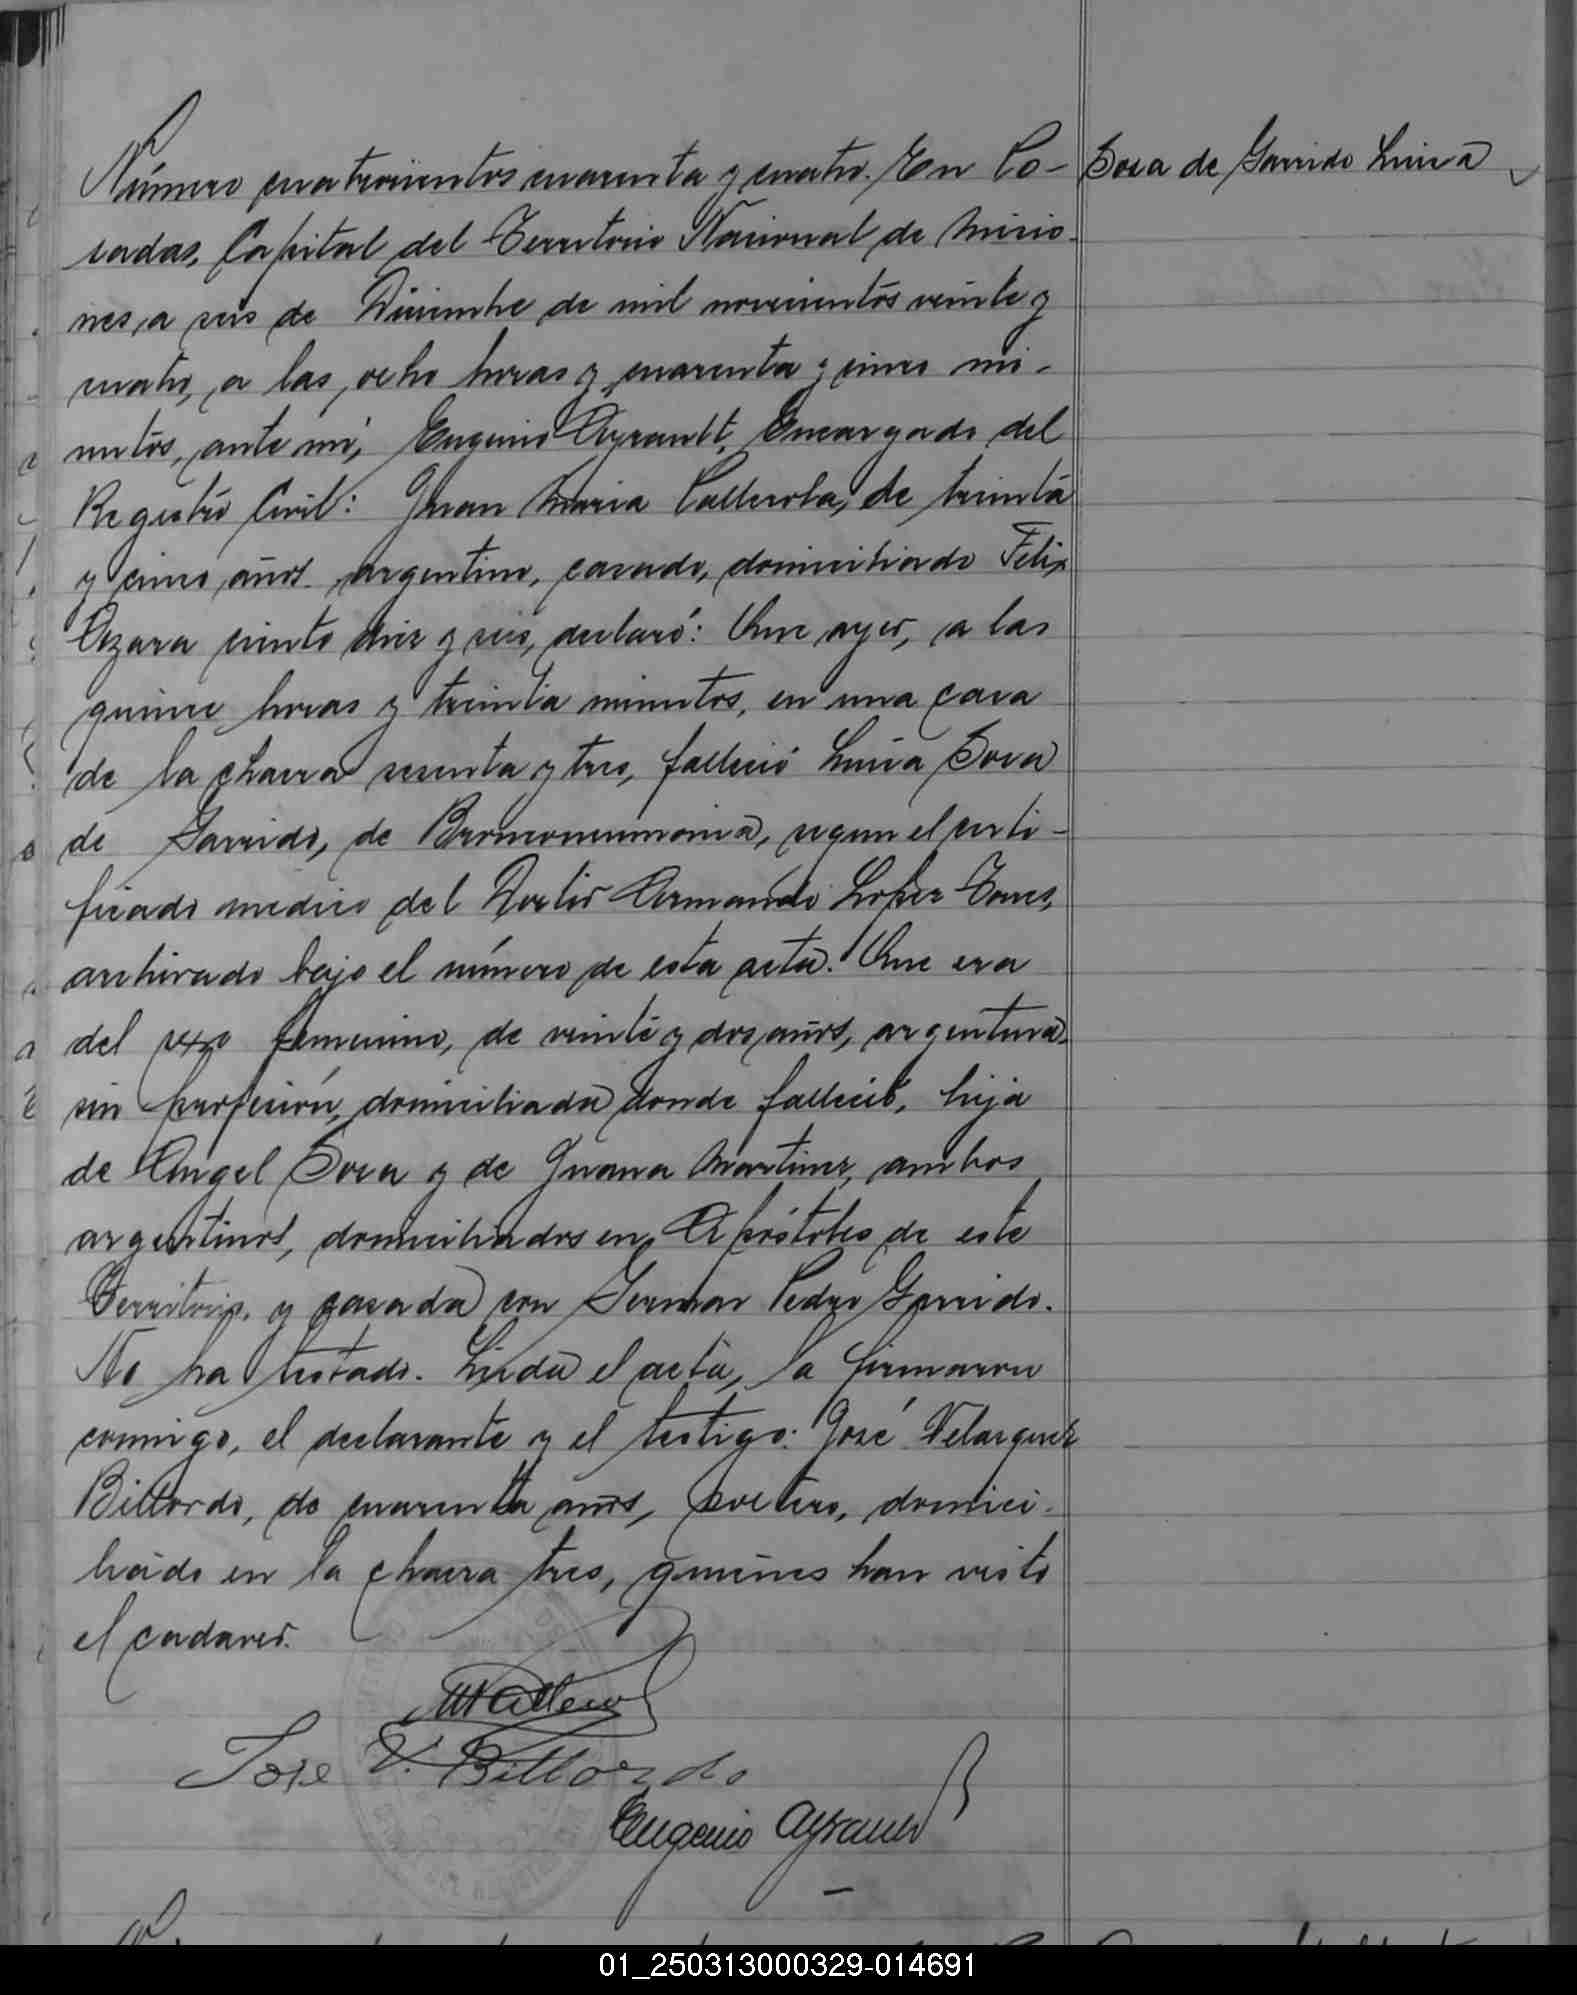 Número cuatrocientos cuarenta y cuatro. En Po-
Sosa de Garrido Luisa
sadas, Capital del Territorio Nacional de Misio-
nes, a seis de Diciembre de mil novecientos veinte y
cuatro, a las ocho horas y cuarenta y cinco mi-
nutos, ante mí, Eugenio Ayrault, Encargado del
Registro Civil: Juan Maria de treinta
y cinco años, argentino, casado, domiciliado Felix
Azara ciento diez y seis, declaró: Que ayer, a las
quince horas y treinta minutos, en una casa
de la chacra sesenta y tres, falleció Luisa Sosa
de Garrido, de Bronconeumonia, segun el certi-
ficado medico del Doctor Armando Lopez Torres,
archivado bajo el número de esta acta. Que era
del sexo femenino, de veinte y dos años, argentina,
sin profesión, domiciliada donde falleció, hija
de Angel Sosa y de Juana Martinez, ambos
argentinos, domiciliados en Apóstoles de este
Territorio, y casada con German Pedro Garrido.
No ha testado. Leida el acta, la firmaron
conmigo, el declarante y el testigo: José Velasquez
Billordo, de cuarenta años, soltero, domici-
liado en la chacra tres, quienes han visto
el cadaver.
Jose V. Billordo
Eugenio Ayrault
01_250313000329-014691